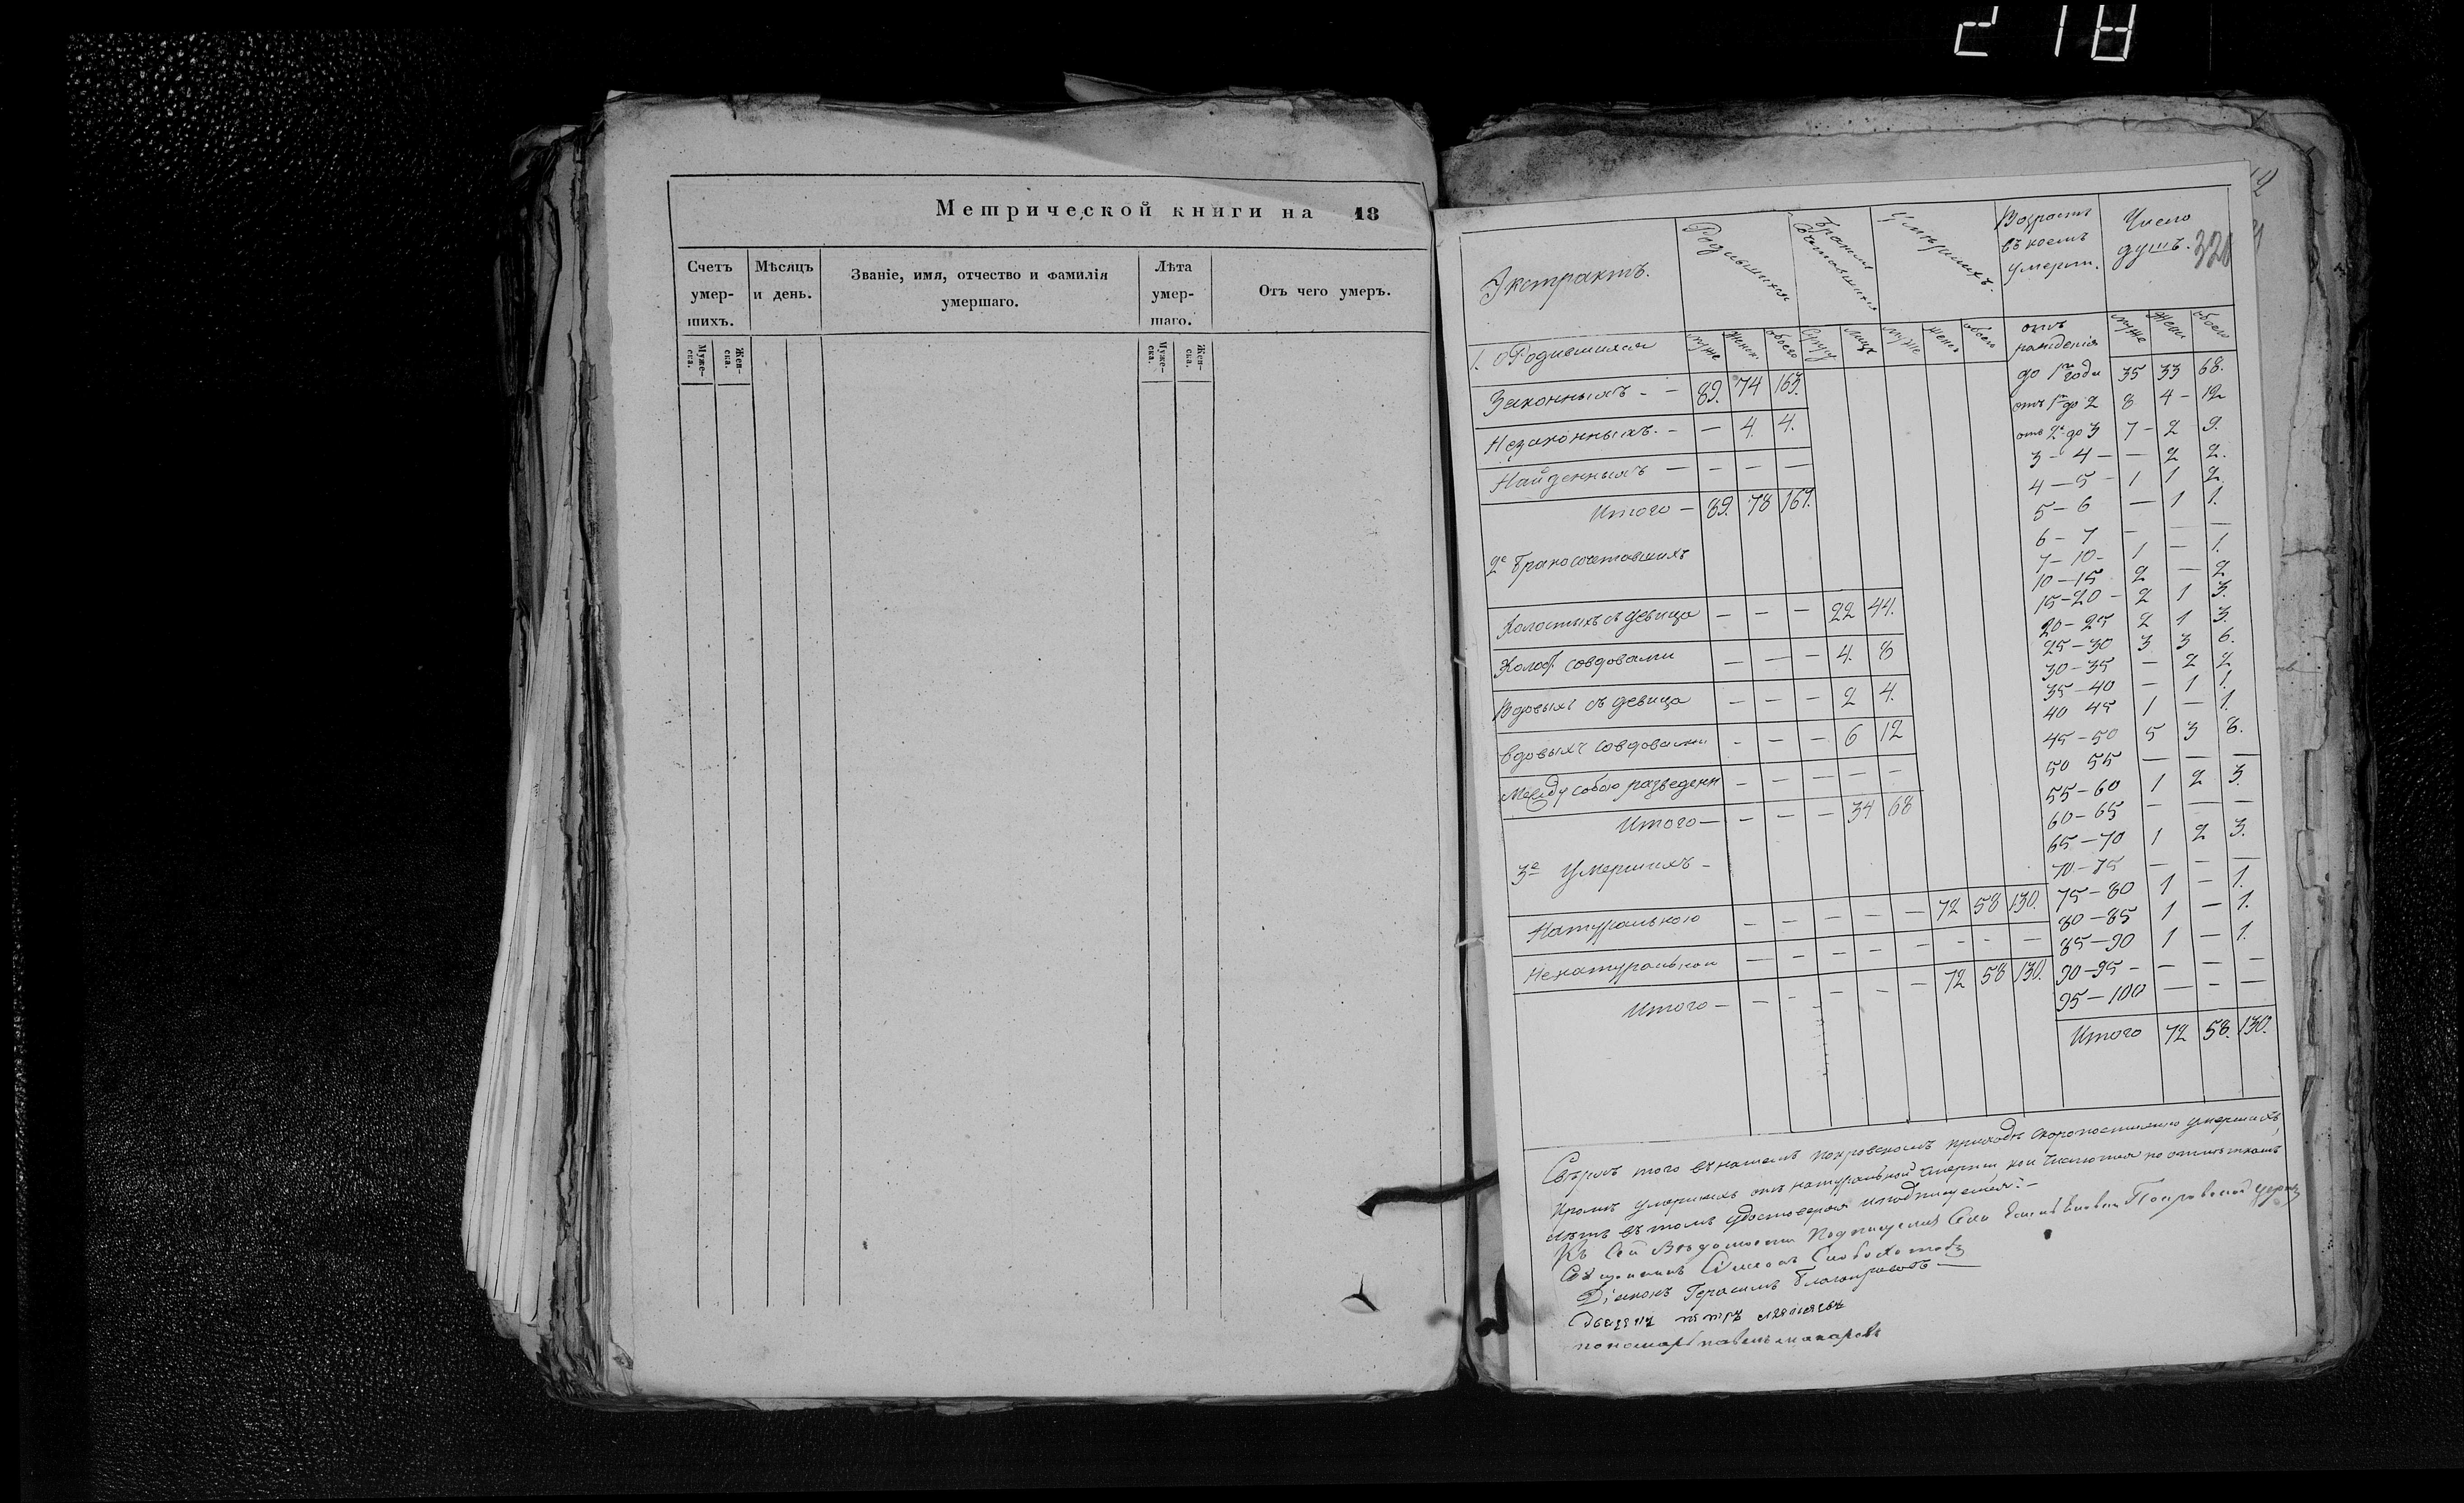 218
Метрической книги на 18
Счетъ умер- шихъ.
Мѣсяцъ и день.
Званіе, имя, отчество и фамилія умершаго.
Лѣта умер- шаго.
Отъ чего умеръ.
Муже- ска.
Жен- ска.
Муже- ска.
Жен- ска.
320
Экстрактъ.
Родившихся
Бракомъ
Умершихъ.
Возрастъ въ коемъ умерли.
Число душъ.
1. о Родившихся
муже женск обоего
муже женс обоего
отъ рожденія
муже женс обоего
до 1го года 35 33 68.
Законныхъ - — 89. 74 163.
отъ 1го до 2 8 4 - 12
Незаконныхъ. - — 4. 4.
отъ 2х до 3 7 - 2 9.
3 - 4 — — 2 2.
Найденныхъ — - — —
4 — 5 - 1 1 2.
Итого — 89. 78 167.
5 - 6 — 1 1.
6 - 7 — — —
2е Бракосочетавшихъ
7 - 10 - 1 — 1.
10 — 15 2 — 2
15 - 20 - 2 1 3.
Холостыхъ съ девица — — — 22 44.
20 - 25 2 1 3.
25 - 30 3 3 6.
Холос. совдовами — — — 4. 8
30 - 35 — 2 2
35 - 40 — 1 1.
Вдовыхъ съ девица — — — 2 4.
40 45 1 — 1.
Вдовыхъ совдовами - — — 6 12
45 - 50 5 3 8.
50 55 — — —
Между собою разведенн - — — — —
55 - 60 1 2 3.
Итого — - — — 34 68
60 - 65 - — —
65 — 70 1 2 3.
3е Умершихъ -
70 - 75 — — —
Натуральною — — — — — 72 58 130.
75 - 80 1 — 1.
80 — 85 1 — 1.
Ненатуральною — — — — — — — —
85 - 90 1 — 1.
90 - 95 - — — —
Итого — — — — — — 72 58 130.
95 — 100 — — —
Итого 72 58. 130.
Сверхъ того въ нашемъ Покровскомъ приходѣ скоропостижно умершихъ,
кромѣ умершихъ отъ натуральной смерти кои
нетъ въ томъ удостоверяя и подписуемся: -
Къ сей Вѣдомости Подписуемся Села Покровской церкви
Священникъ Симеонъ
Діаконъ Герасимъ —
Дьячекъ петръ
пономарь павелъ макаровъ